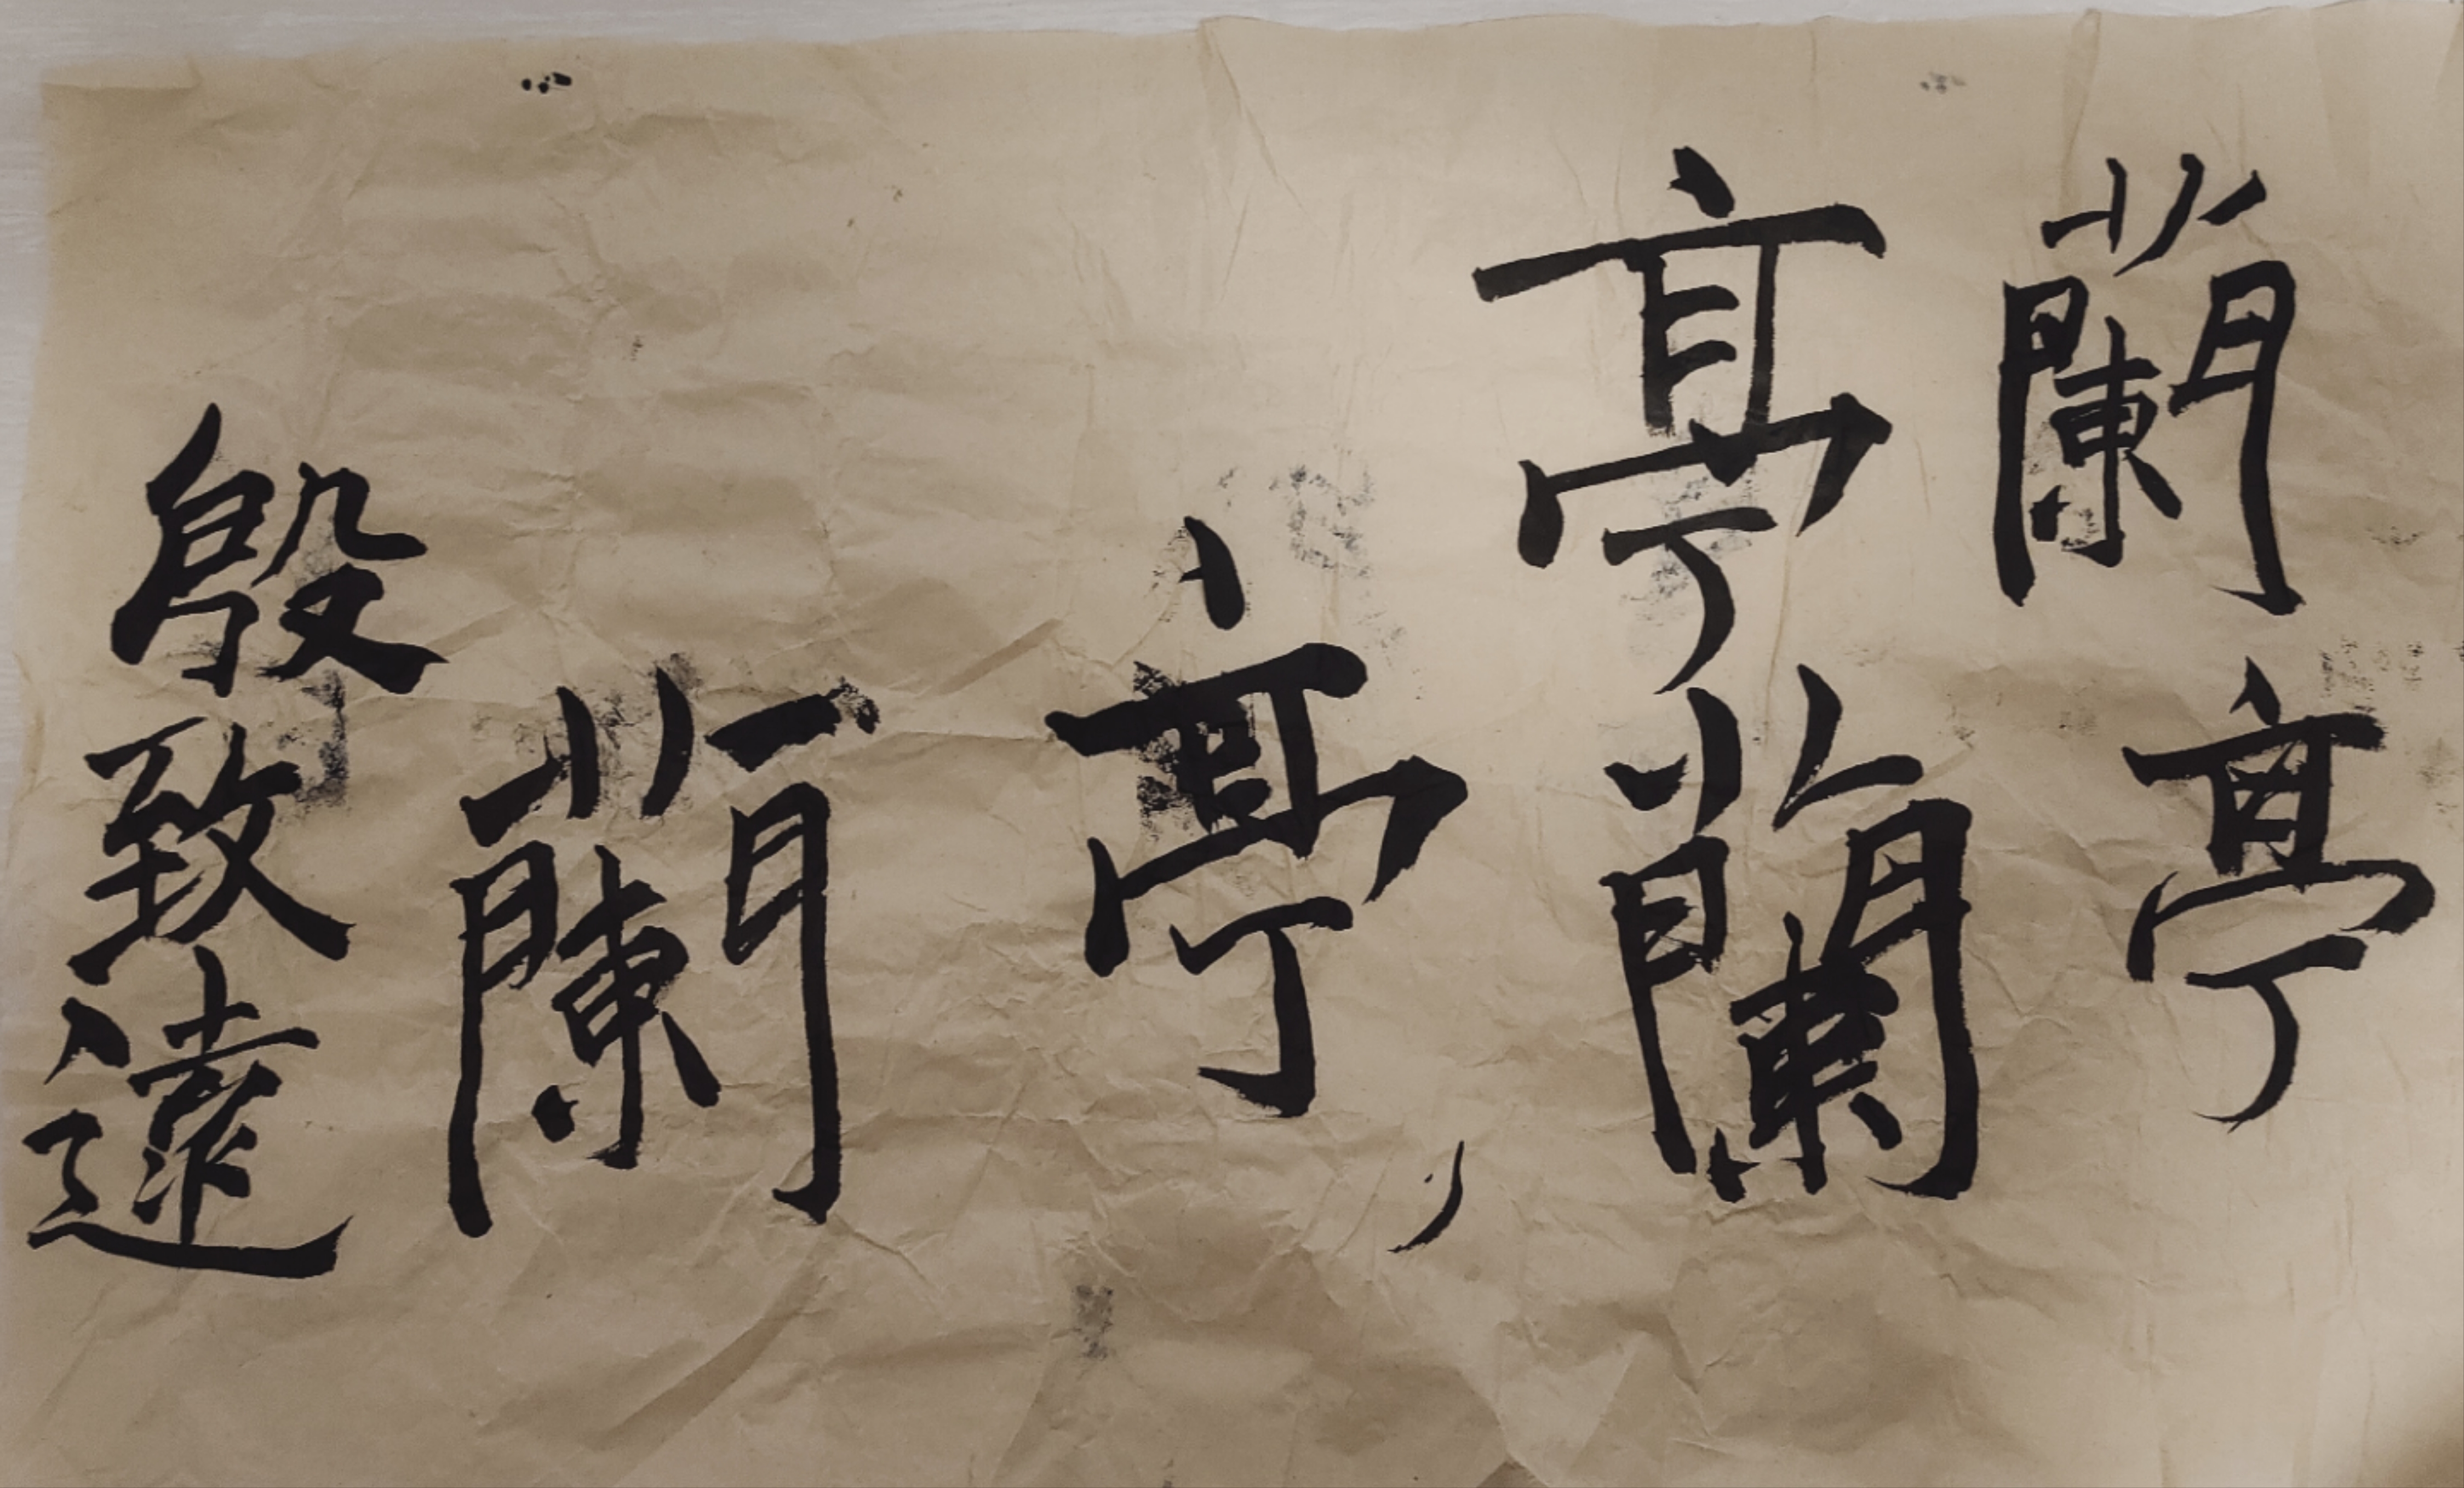 蘭亭
亭蘭
亭
蘭
殷致遠